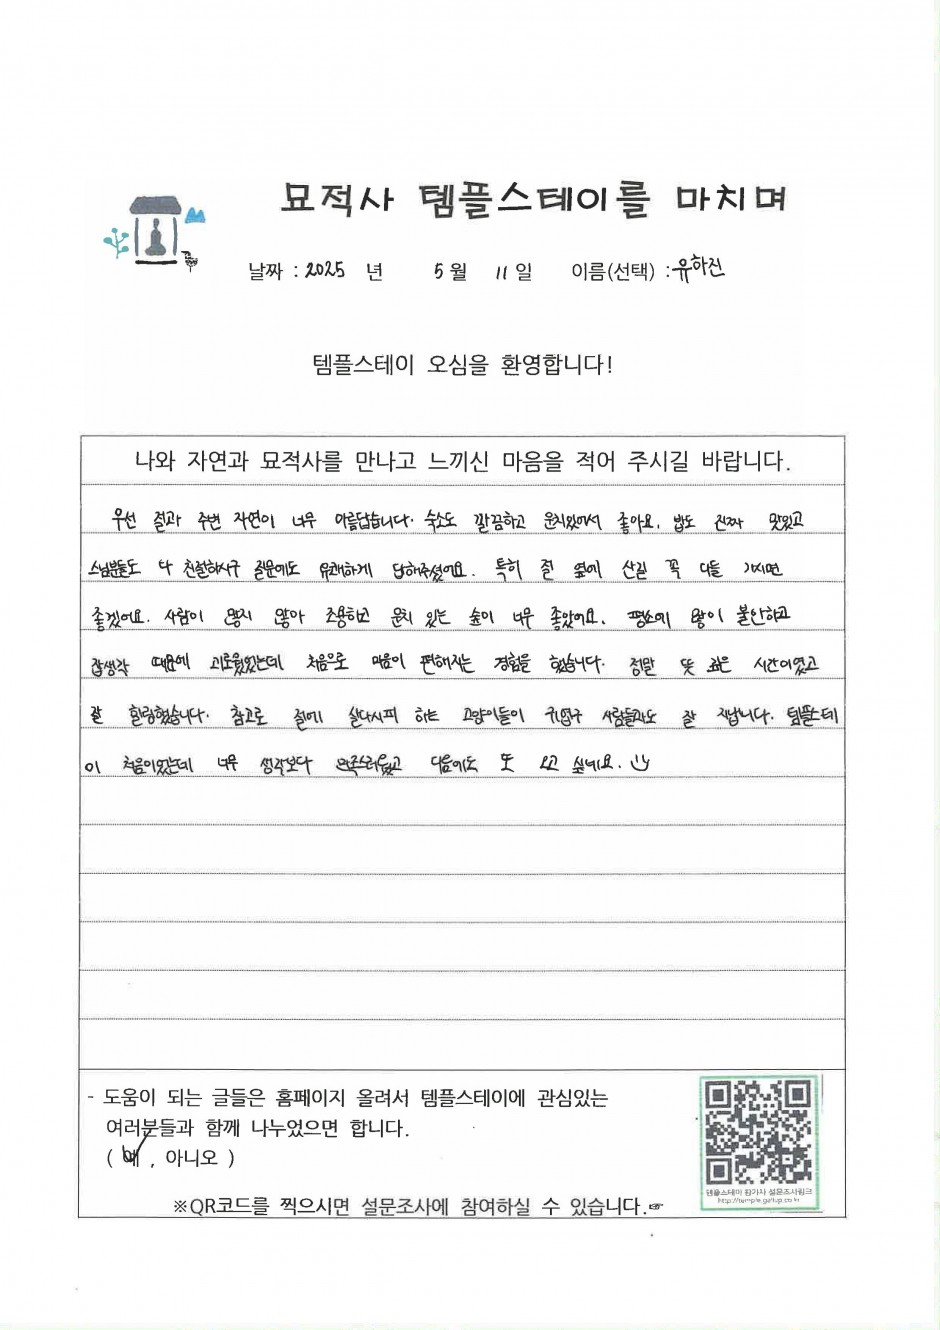 묘적사 템플스테이를 마치며
날짜 : 2025 년 5 월 11 일 이름(선택) : 유하진
템플스테이 오심을 환영합니다!
나와 자연과 묘적사를 만나고 느끼신 마음을 적어 주시길 바랍니다.
우선 절과 주변 자연이 너무 아름답습니다. 숙소도 깔끔하고 운치있어서 좋아요. 밥도 진짜 맛있고
스님분들도 다 친절하시구 질문에도 유쾌하게 답해주셨어요. 특히 절 옆에 산길 꼭 다들 가시면
좋겠어요. 사람이 많지 않아 조용하고 운치 있는 숲이 너무 좋았어요. 평소에 많이 불안하고
잡생각 때문에 괴로웠었는데 처음으로 마음이 편해지는 경험을 했습니다. 정말 뜻 깊은 시간이였고
잘 힐링했습니다. 참고로 절에 살다시피 하는 고양이들이 귀엽구 사람들과도 잘 지냅니다. 템플스테
이 처음이었는데 너무 생각보다 만족스러웠고 다음에도 또 오고 싶네요.
- 도움이 되는 글들은 홈페이지 올려서 템플스테이에 관심있는
여러분들과 함께 나누었으면 합니다.
( 예 , 아니오 )
템플스테이 참가자 설문조사링크
http://temple.gallup.co.kr
※QR코드를 찍으시면 설문조사에 참여하실 수 있습니다.☞